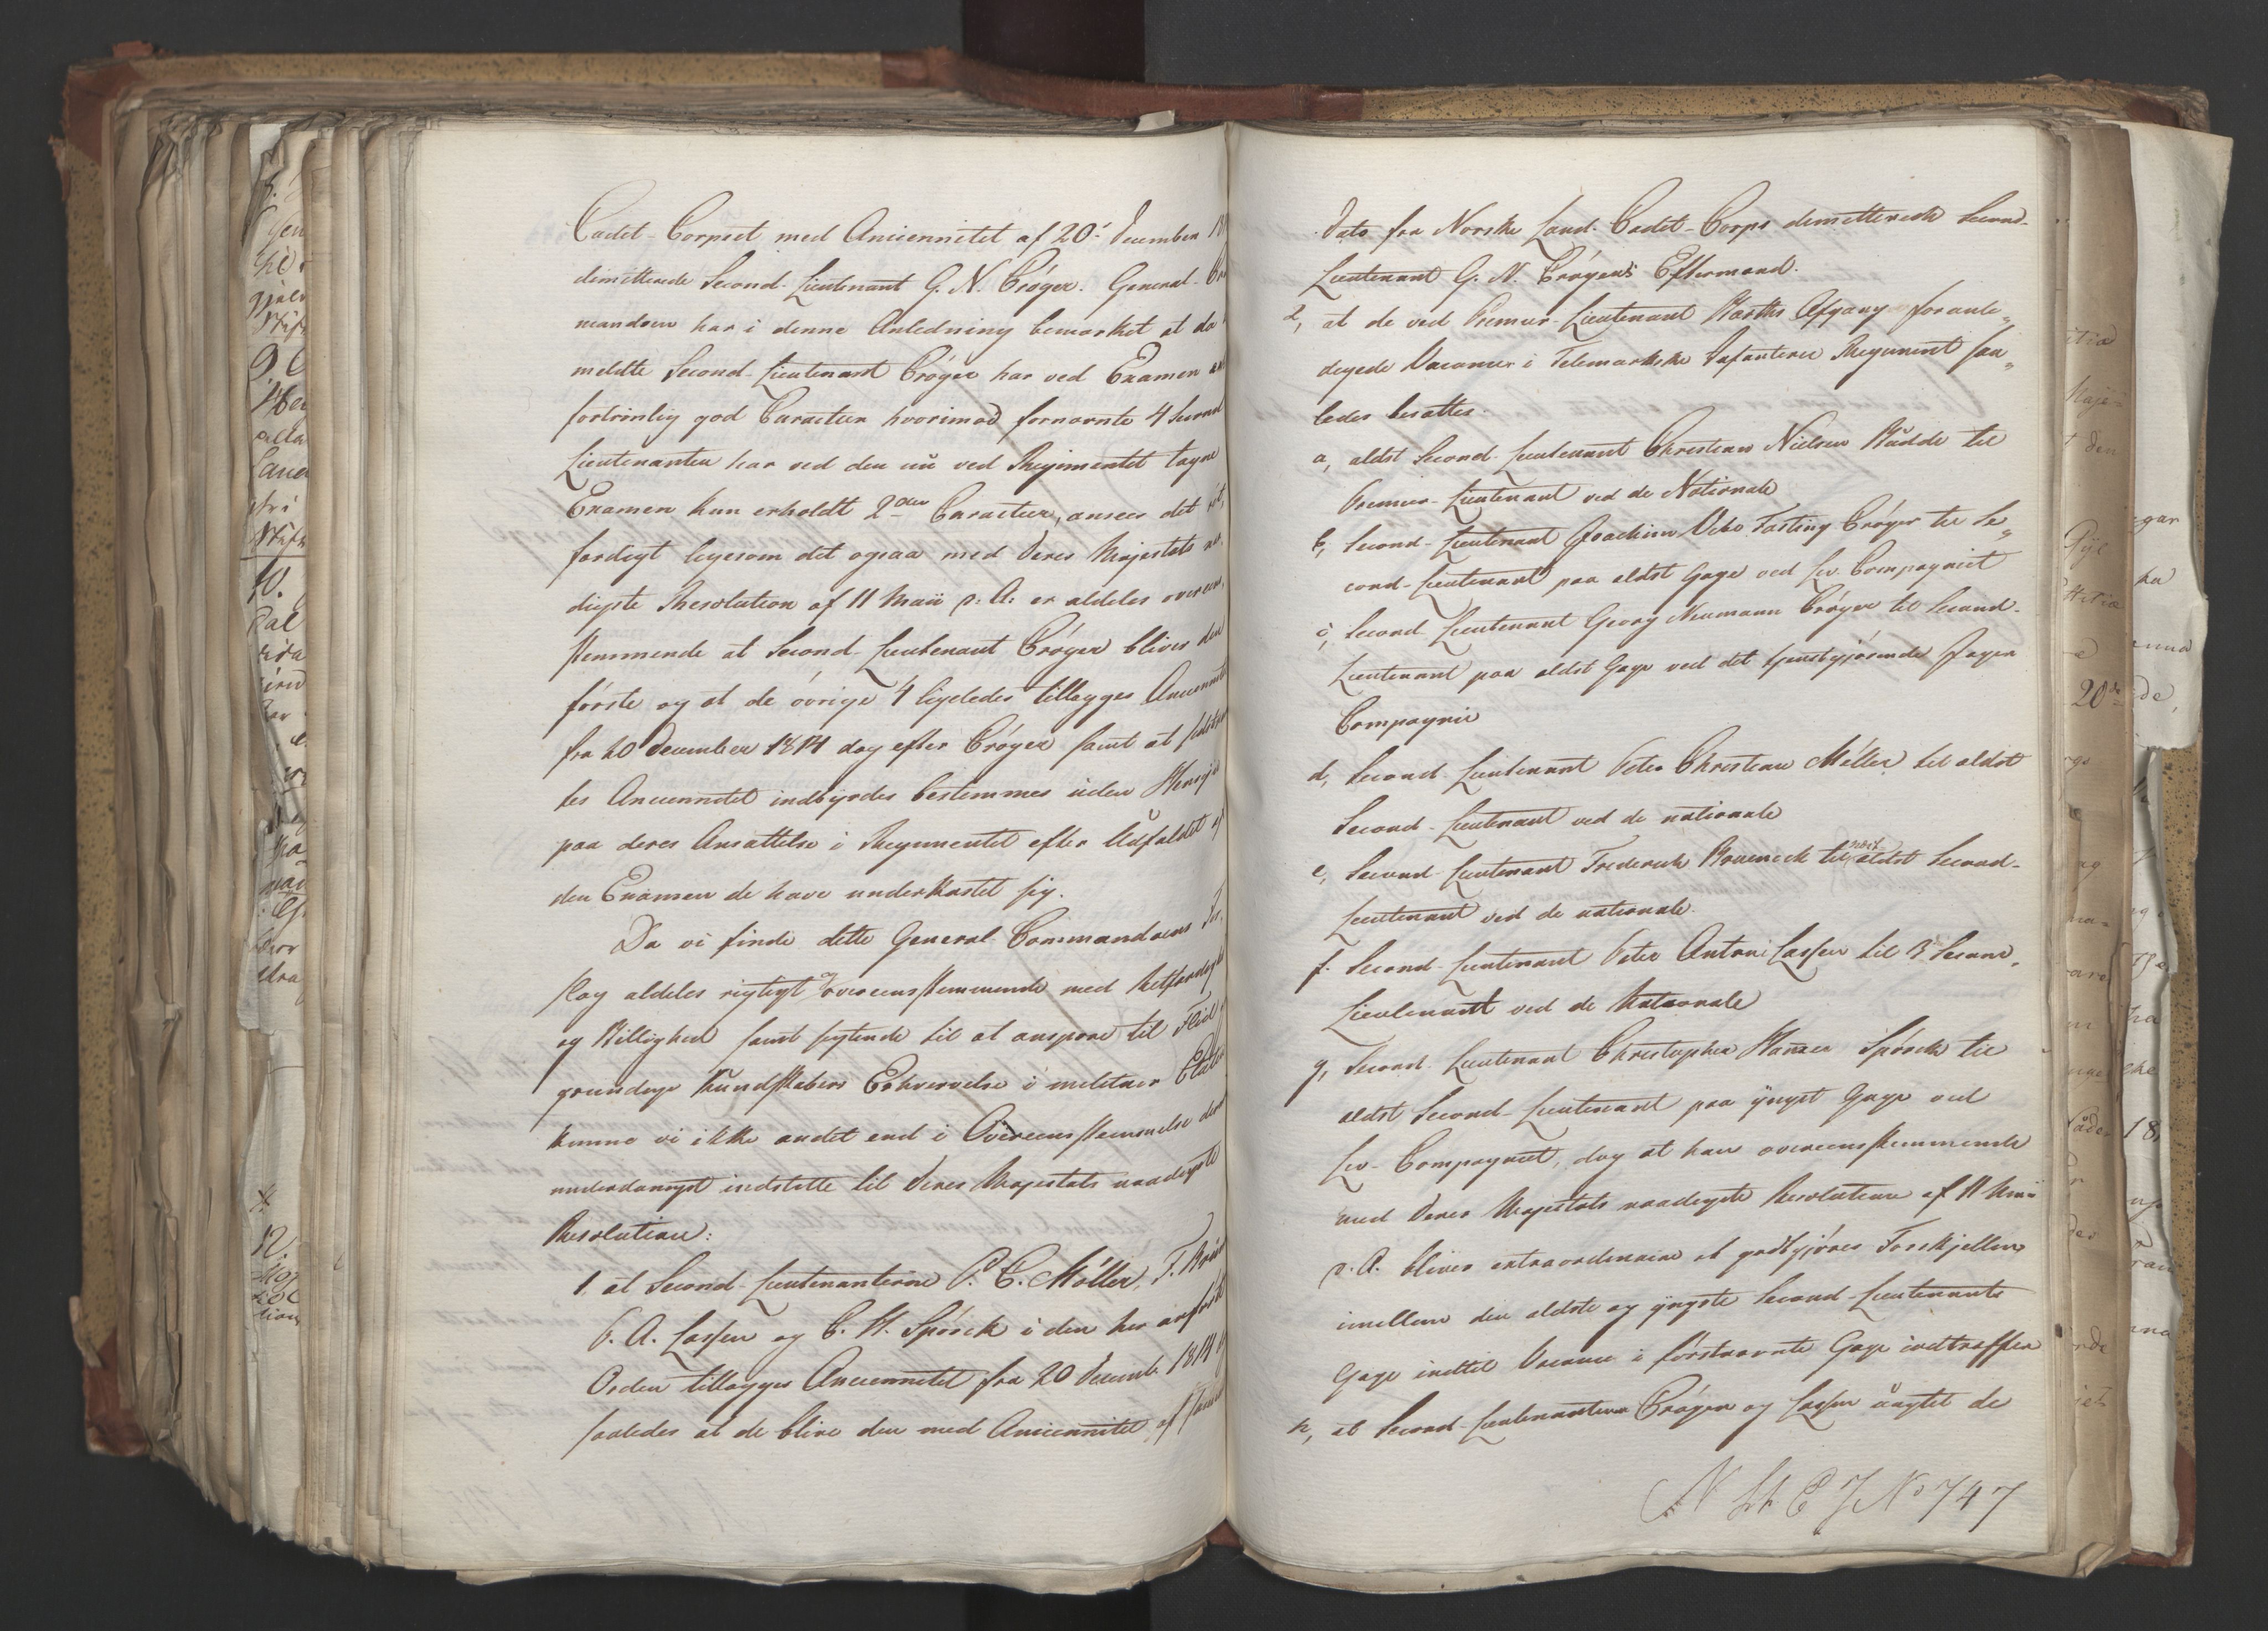 Cadet-Corpset med Anciennitet af 20de December
dimitterede Second-Lieutenant G. N. Crøger. General-
mandoen har i denne Anledning bemærket at da
meldte Second-Lieutenant Crøger har ved Examen
fortrinlig god Caracteer hvorimod fornævnte 4 Second
Lieutenanter har ved den nu ved Regimentet tagne
Examen kun erholdt 2den Caracteer, ansees det
færdigt ligesom det ogsaa med Deres Majestæts
digste Resolution af 11 Maii d: A: er aldeles overeens
stemmende at Second-Lieutenant Crøger bliver den
første og at de øvrige 4 ligeledes tillægges Anciennitet
fra 20 December 1814 dog efter Crøger samt at
tes Anciennitet indbyrdes bestemmes uden Hensyn
paa deres Ansættelse i Regimentet efter Udfaldet af
den Examen de have underkastet sig.
Da vi finde dette General-Commandoens For-
slag aldeles rigtigt og overeensstemmende med Retfærdighed
og Billighed samt sigtende til at anspore til Fliid
grundige Kundskabers Erhvervelse i militær
kunne vi ikke andet end i Overeensstemmelse
underdanigst indstille til Deres Majestæts naadigste
Resolution:
1. at Second-Lieutenanterne P. C. Møller, F.
P. A. Lassen og C. H. Spörck i den her anførte
Orden tillægges Anciennitet fra 20 Decembr 1814
saaledes at de blive den med Anciennitet af samme
Dato fra Norske Land-Cadet-Corps dimitterede Second-
Lieutenant G. N. Crøgers Eftermænd.
2, at de ved Premier-Lieutenant Barths Afgang foranle-
digede Vacancer i Telemarkske Infanterie Regiment saa-
ledes besættes.
a, ældst Second-Lieutenant Christian Nielsen Budde til
Premier-Lieutenant ved de Nationale
b, Second-Lieutenant Joachim Vibe Fasting Crøger til Se-
cond-Lieutenant paa ældst Gage ved Liv-Compagniet
c, Second-Lieutenant Georg Neumann Crøger til Second-
Lieutenant paa ældst Gage ved det tjenstgjørende Jæger
Compagnie
d, Second-Lieutenant Peter Christian Møller til ældst
Second-Lieutenant ved de nationale
e, Second-Lieutenant Frederich til næst ældst Second-
Lieutenant ved de nationale.
f. Second-Lieutenant Peter Antoni Lassen til 3 Second-
Lieutenant ved de Nationale
g, Second-Lieutenant Christopher Hansen Spörck til
ældst Second-Lieutenant paa yngst Gage ved
Liv-Compagniet, dog at han overeensstemmende
med Deres Majestæts naadigste Resolution af 11 Maii
d. A. bliver extraordinaire at godtgjøres Forskjellen
imellem den ældste og yngste Second-Lieutenants
Gage indtil Vacance i førstnævnte Gage indtræffer
h, at Second-Lieutenanterne Crøger og Lassen uagtet de
N Lt C J No 747